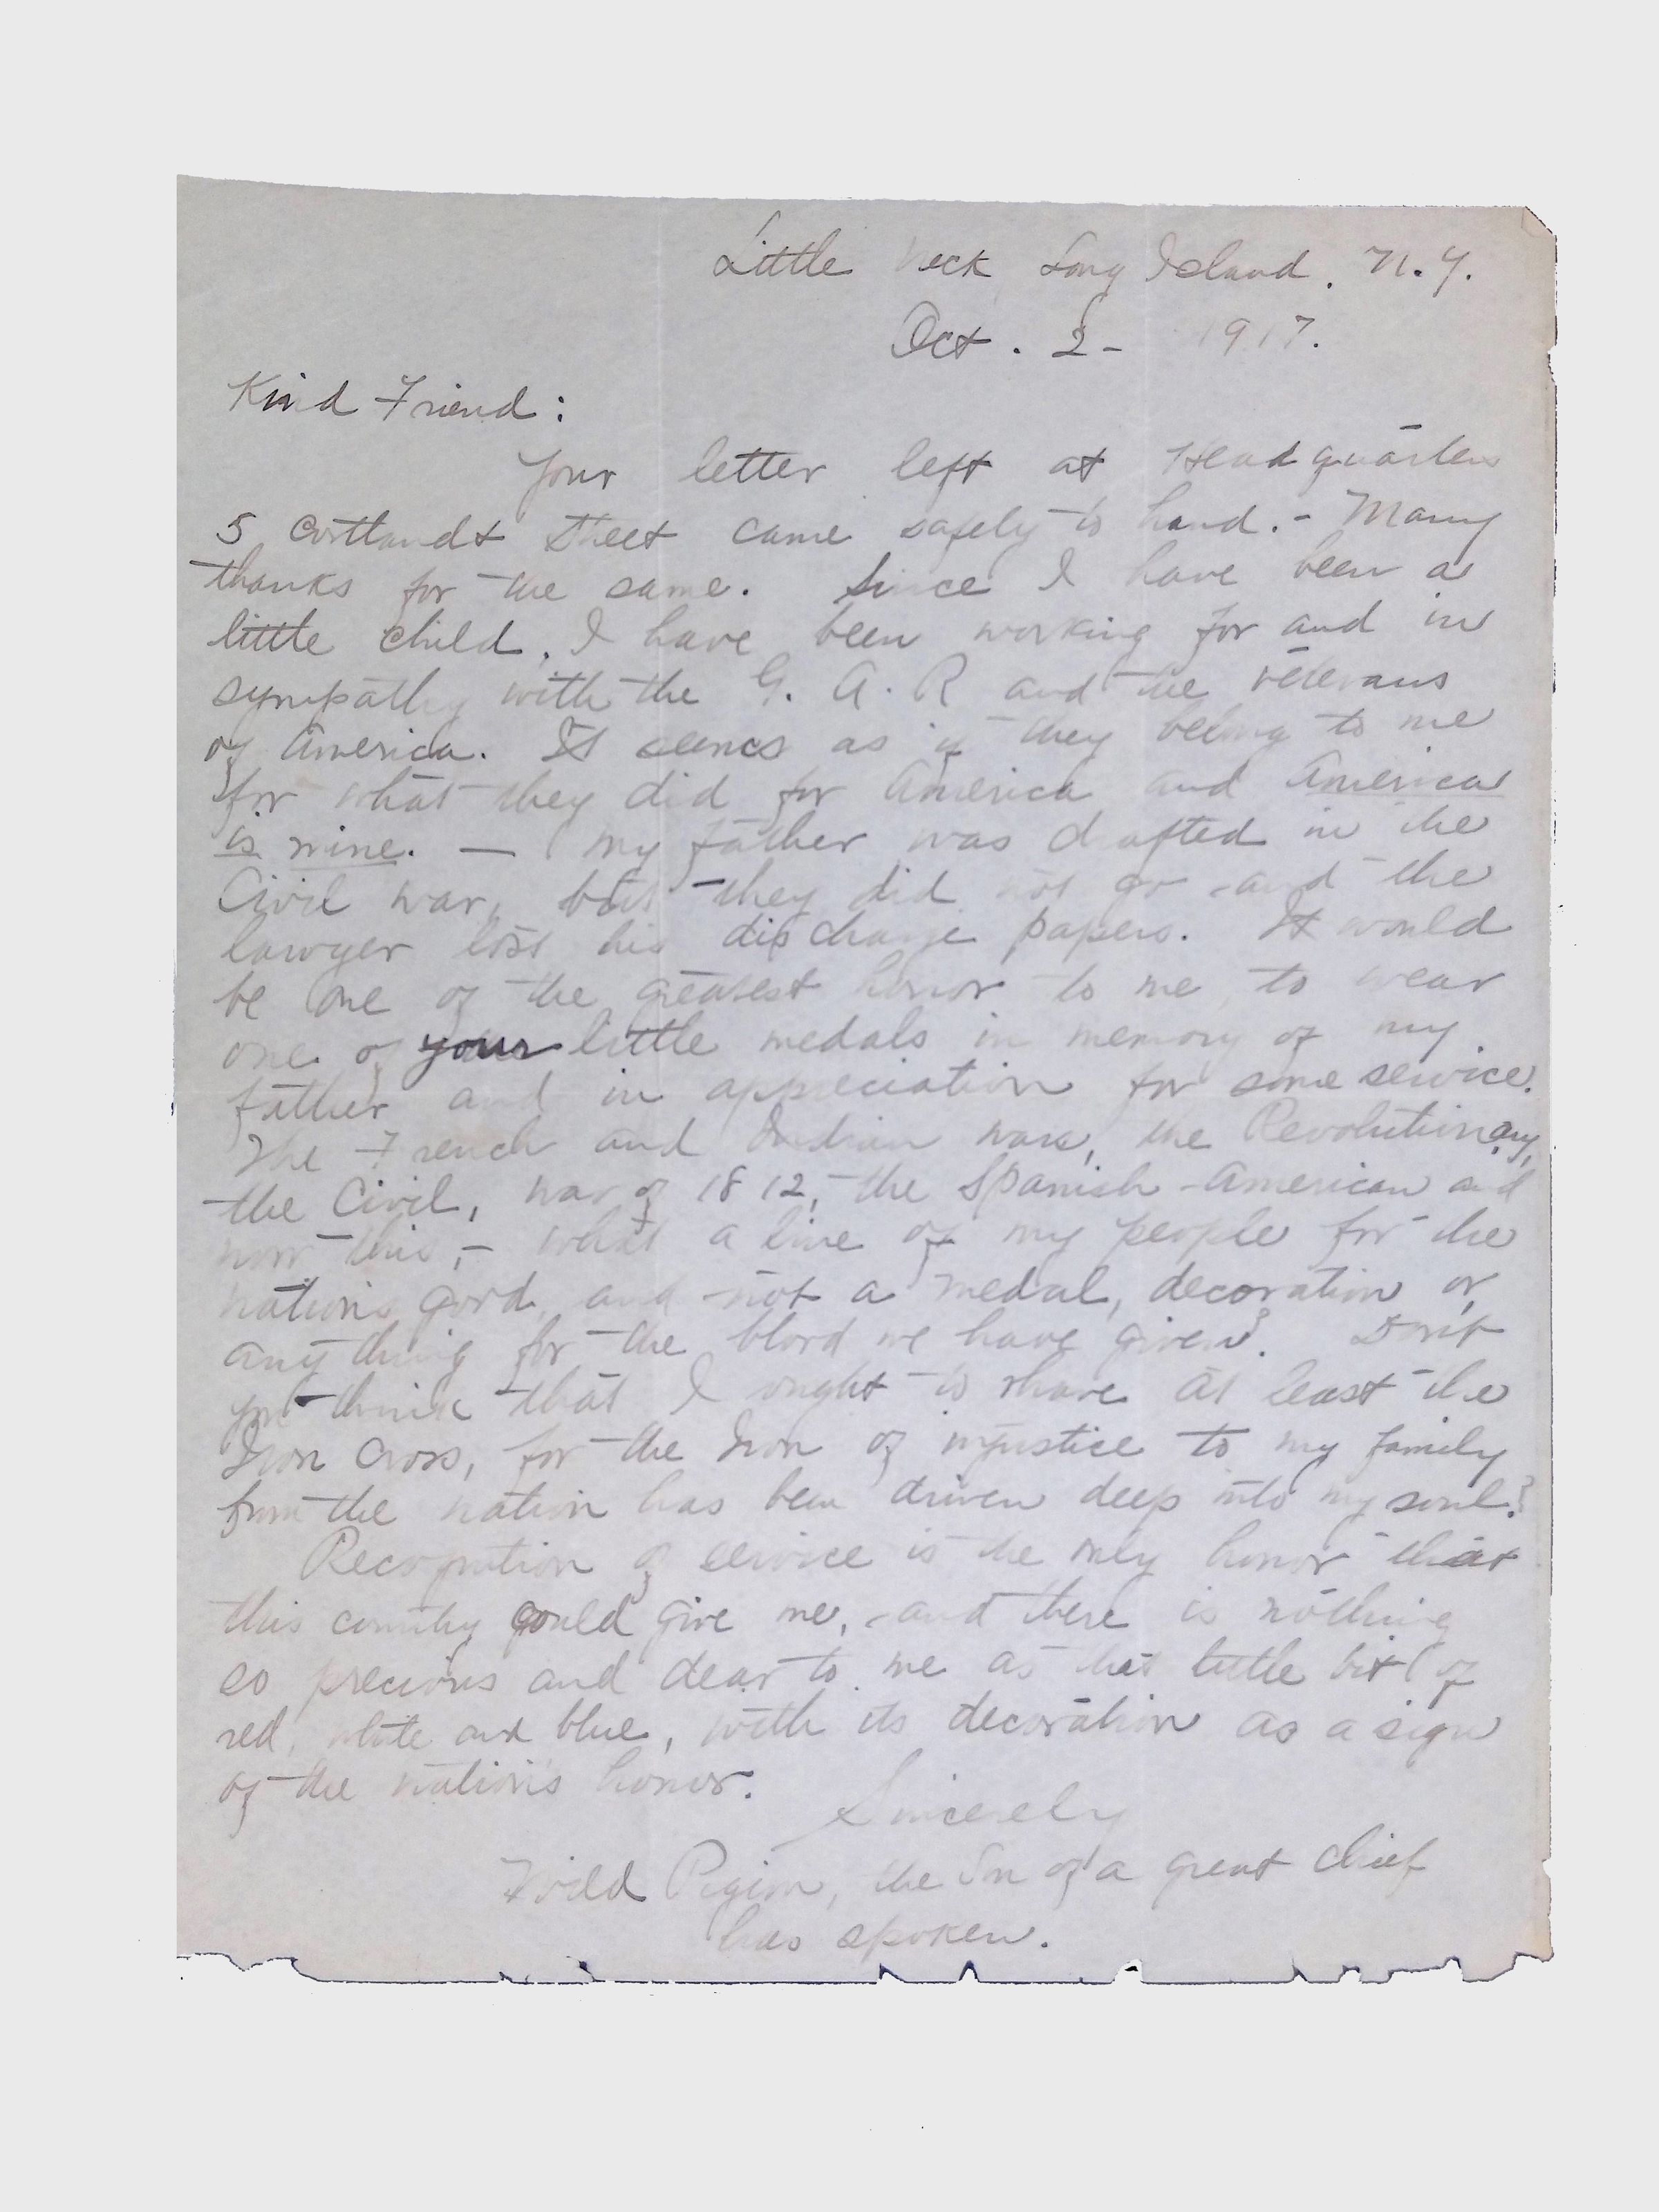 Little Neck Long Island. N.Y.
Oct. 2- 1917.
Kind Friend:
Your letter left at Headquarters
5 Cortlandt Street came safely to hand.- Many
thanks for the same. Since I have been a
little child, I have been working for and in
sympathy with the G. A. R and the veterans
of America. It seems as if they belong to me
for what they did for America and America
is mine. — My father was drafted in the
Civil war, but they did not go and the
lawyer lost his discharge papers. It would
be one of the greatest honor to me, to wear
one of your little medals in memory of my
father and in appreciation for some service.
The French and Indian wars, the Revolutionary,
the Civil, war of 1812, the Spanish-American and
now this,- what a line of my people for the
nations good, and not a medal, decoration or
any thing for the blood we have given? Don't
you think that I ought to have at least the
Iron Cross, for the Iron of injustice to my family
from the nation has been driven deep into my soul?
Recognition of service is the only honor that
this country could give me, and there is nothing
so precious and dear to me as that little bit of
red, white and blue, with its decoration as a sign
of the nation's honor.
Sincerely
Wild Pigeon, the Son of a great chief
has spoken.